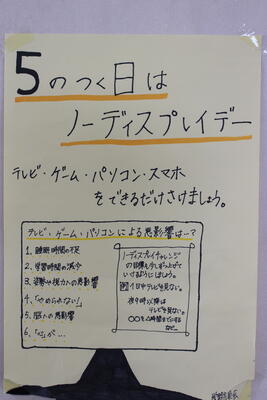 5のつく日は
ノーディスプレイデー
テレビ・ゲーム・パソコン・スマホ
をできるだけさけましょう。
テレビ・ゲーム・パソコンによる悪影響は…?
1、睡眠時間の不足
2、学習時間の減少
3、姿勢や視力への悪影響
4、「やめられない」
5、脳への悪影響
6、「心」が…
ノーディスプレイチャレンジ
の目標も少しずつ上げて
いけるようにしましょう。
例 1日中テレビを見ない。
夜9時以降は
テレビを見ない。
〇〇を△時間までにする
など…